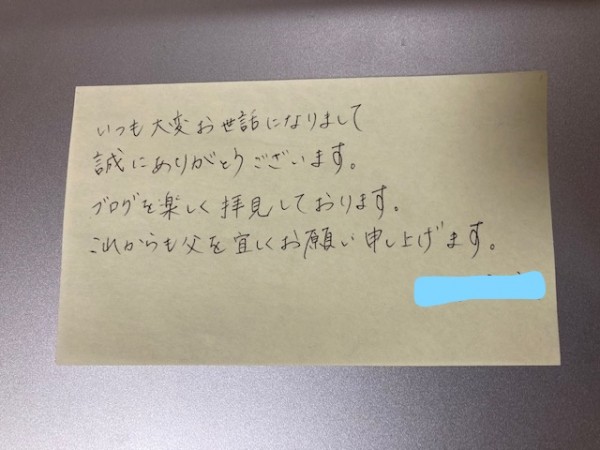 いつも大変お世話になりまして
誠にありがとうございます。
ブログを楽しく拝見しております。
これからも父を宜しくお願い申し上げます。